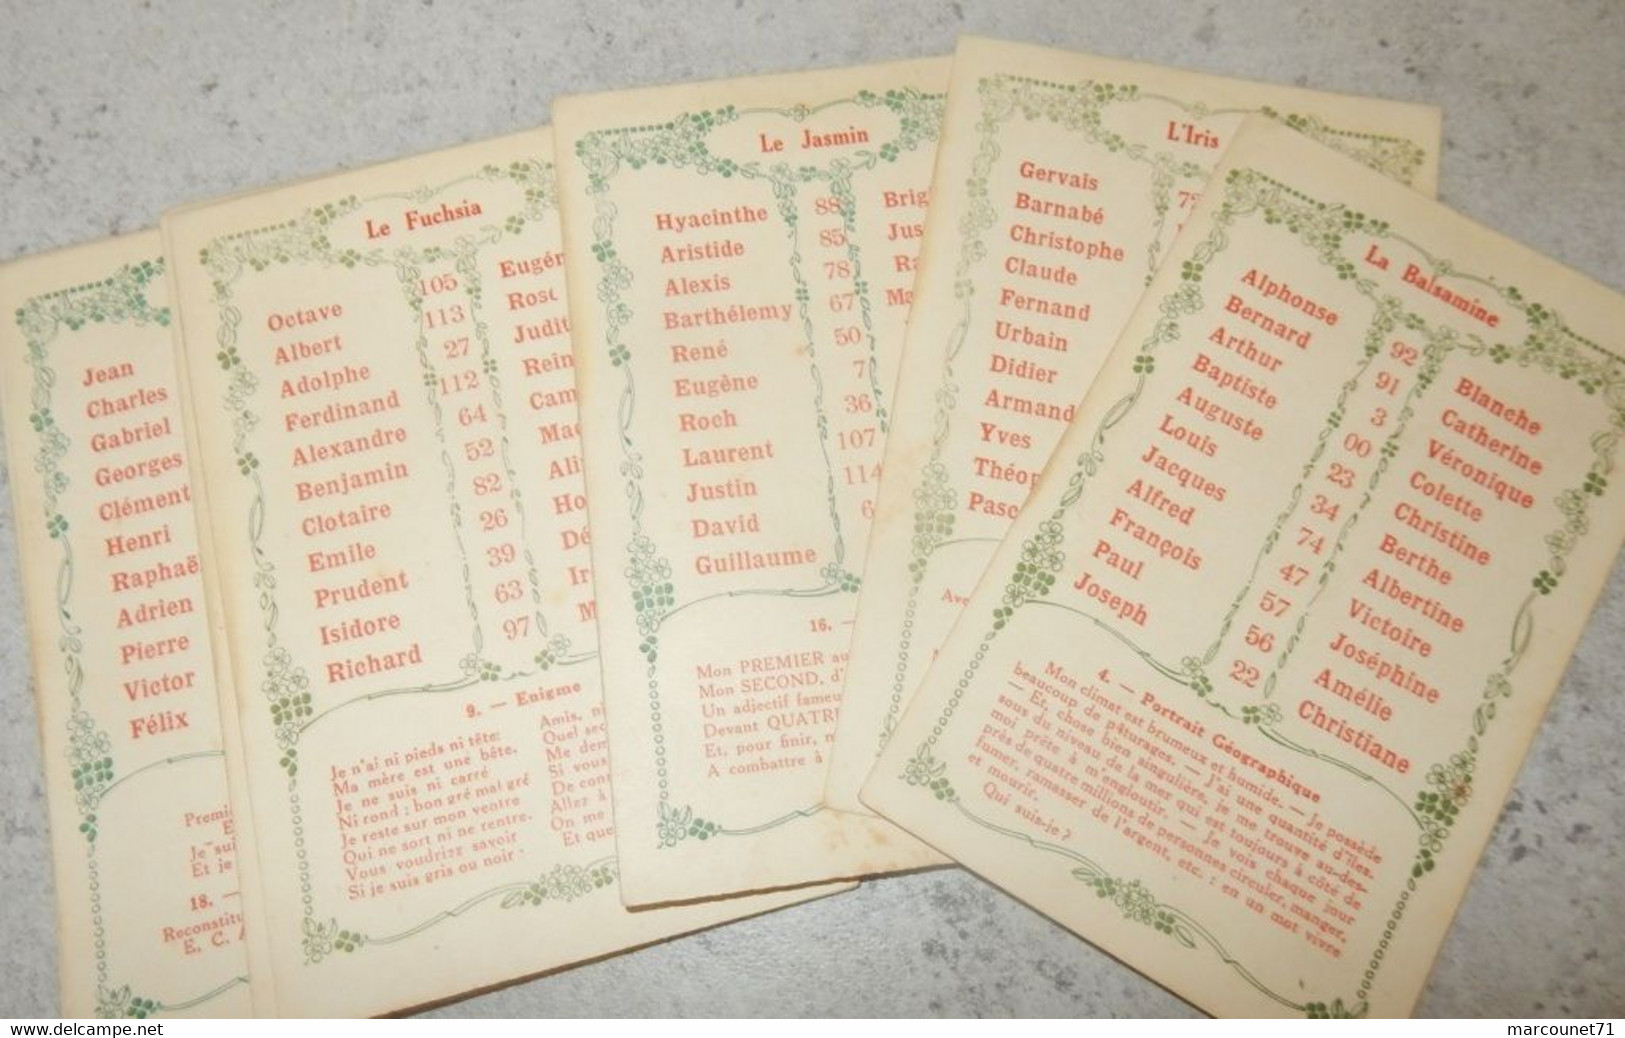 Jean
Charles
Gabriel
Georges
Clément
Henri
Raphaë
Adrien
Pierre
Victor
Félix
Premi
Je sui
Et je
18. —
Reconstitu
E. C.
Le Fuchsia
Octave 105 Eugén
Albert 113
Adolphe 27 Judit
Ferdinand 112 Rein
Alexandre 64 Cam
Benjamin 52
Clotaire 82
Emile 26
Prudent 39
Isidore 63
Richard 97
9. — Enigme
Je n'ai ni pieds ni tête:
Ma mère est une bête.
Je ne suis ni carré
Ni rond ; bon gré mal gré
Je reste sur mon ventre
Qui ne sort ni ne rentre.
Vous voudriez savoir
Si je suis gris ou noir
Amis, ni
Quel sec
Me dem
Si vous
De con
Allez à
On me
Et que
Le Jasmin
Hyacinthe 88 Brig
Aristide 85 Jus
Alexis 78
Barthélemy 67 Ma
René 50
Eugène 7
Roch 36
Laurent 107
Justin 114
David 6
Guillaume
16. —
Mon PREMIER au
Mon SECOND, d'
Un adjectif fameu
Devant QUATRE
Et, pour finir, m
A combattre à
L'Iris
Gervais
Barnabé
Christophe
Claude
Fernand
Urbain
Didier
Armand
Yves
Théop
Pasc
Ave
La Balsamine
Alphonse 92 Blanche
Bernard 91 Catherine
Arthur 3 Véronique
Baptiste 00 Colette
Auguste 23 Christine
Louis 34 Berthe
Jacques 74 Albertine
Alfred 47 Victoire
François 57 Joséphine
Paul 56 Amélie
Joseph 22 Christiane
4. — Portrait Géographique
Mon climat est brumeux et humide. — Je possède
beaucoup de pâturages. — J'ai une quantité d'îles.
— Et, chose bien singulière, je me trouve au-des-
sous du niveau de la mer qui est toujours à côté de
moi prête à m'engloutir. — Je vois chaque jour
près de quatre millions de personnes circuler, manger,
fumer, ramasser de l'argent, etc. : en un mot vivre
et mourir.
Qui suis-je ?
www.delcampe.net
marcounet71